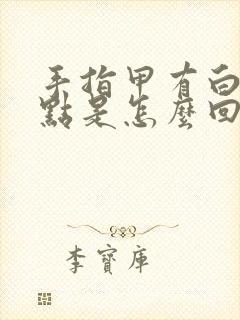 手指甲有白
點是怎麼回
李寶庫